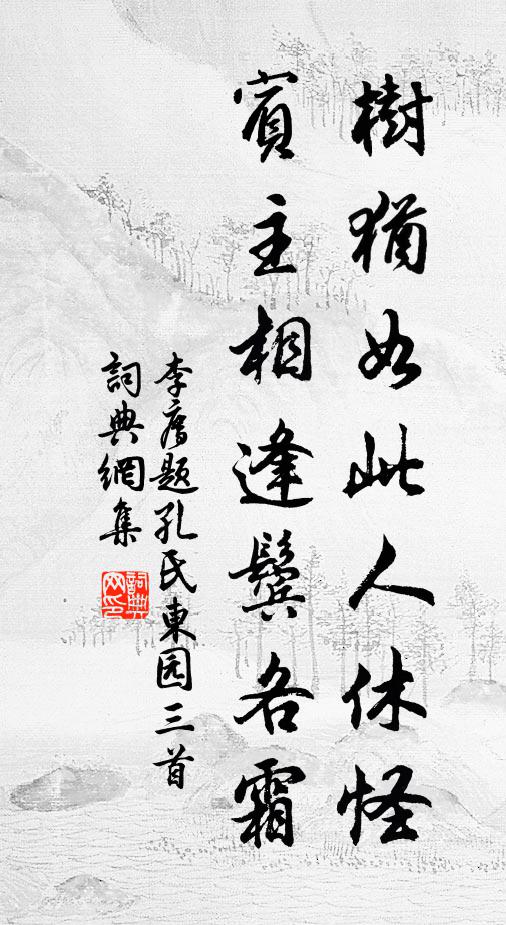 樹猶如此人休怪
賓主相逢鬓各霜
李廌題孔氏東园三首
詞典網集
詞典網印